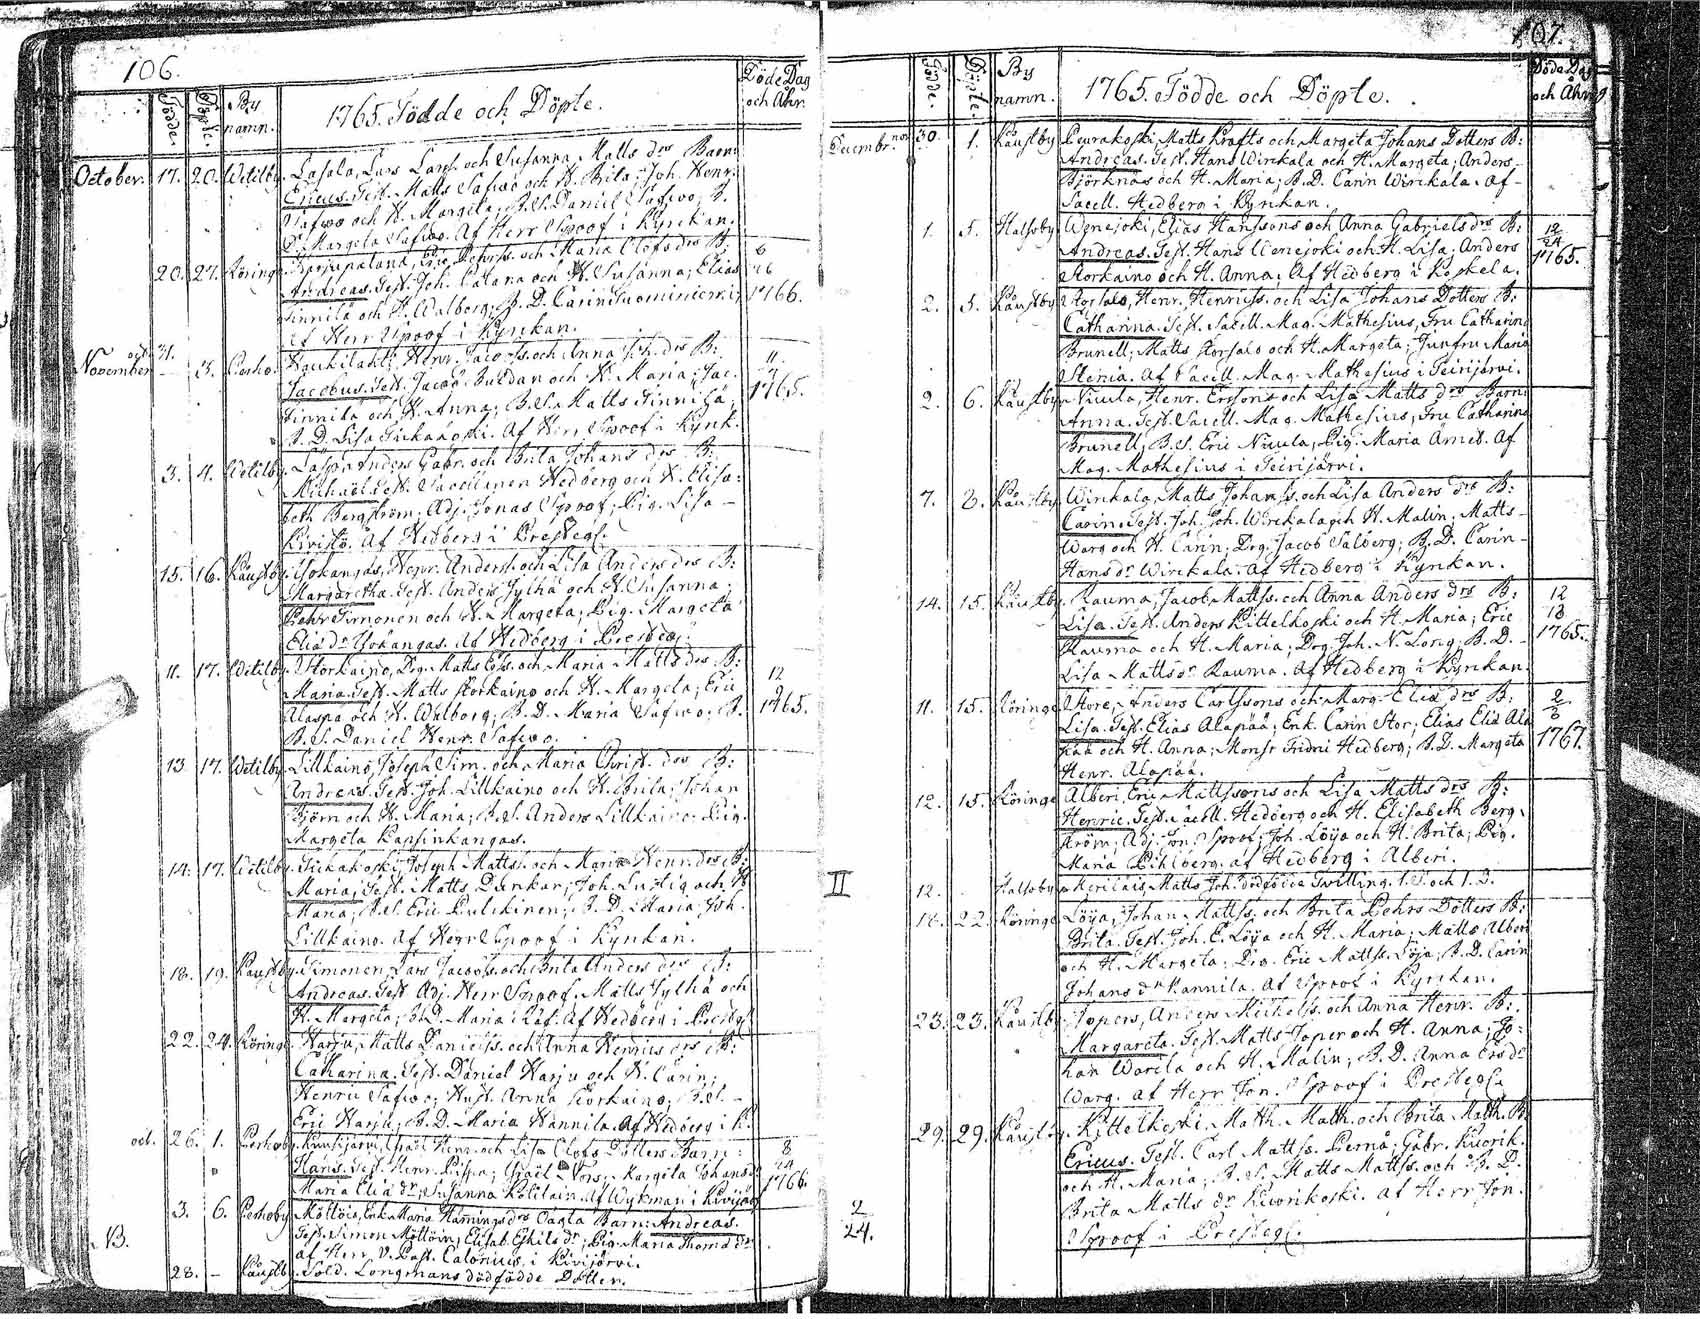 106.
Födde.
Döpte.
By namn.
1765. Födde och Döpte.
Döde Dag och Åhr.
October. 17. 20. Wetilby. Lasala, Lars Larss. och Susanna Matts drs Barn:
Ericus. Test. Matts Safwo och H. Brita; Joh. Henr.
Safwo och H. Margeta; B. S. Daniel Safwo;
Margeta Safwo. Af Herr Spoof i Kyrckan.
20. 27. Röringe. Pehrss. och Maria Olofs drs B:
Andreas. Test. Joh. Patana och H. Susanna; Elias
Finnilä och H. Walborg; B. D. Carin
af Herr Spoof i Kyrckan.
6
26
1766.
oct. 31.
November 3. Perho. Haukilahti, Henr. Jacobss. och Anna Joh. drs B:
Jacobus. Test. Jacob och H. Maria; Jac.
Finnilä och H. Anna; B. S. Matts Finnilä;
B. D. Lisa. Af Herr Spoof i Kyrck.
11
1765.
3. 4. Wetilby. Anders Gabr. och Brita Johans drs B:
Michaël. Test. Sacellanen Hedberg och H. Elisa:
beth Bergström; Adj. Jonas Spoof; Pig. Lisa
Kivistö. Af Hedberg i Prestegl.
15. 16. Käustby. Henr. Anderss. och Lisa Anders drs B:
Margaretha. Test. Anders Jylhä och H. Susanna;
Pehr Timonen och H. Margeta; Pig. Margeta
Elia dr. Af Hedberg i Prestegl.
11. 17. Wetilby. Storkaino, Drg. Matts och Maria Matts drs B:
Maria. Test. Matts Storkaino och H. Margeta; Eric
Alaspä och H. Walborg; B. D. Maria Safwo;
B. S. Daniel Henr. Safwo.
12
1765.
13. 17. Wetilby. Lillkaino, Joseph Sim. och Maria Christ. drs B:
Andreas. Test. Joh. Lillkaino och H. Brita; Johan
Björn och H. Maria; B. S. Anders Lillkaino; Pig.
Margeta Kapsinkangas.
14. 17. Wetilby. Joseph Mattss. och Maria Henr. drs B:
Maria; Test. Matts Dunkar; Joh. Lustig och H.
Maria; B. S. Eric Pulckinen; B. D. Maria Joh.
Lillkaino. Af Herr Spoof i Kyrckan.
18. 19. Käustby. Timonen, Lars Jacobss. och Brita Anders drs B:
Andreas. Test. Adj. Herr Spoof; Matts Jylhä och
H. Margeta; B. D. Maria. Af Hedberg i Prestegl.
22. 24. Röringe. Harju, Matts Danielss. och Anna Henrics drs B:
Catharina. Test. Daniel Harju och H. Carin;
Henric Safwo; Hust. Anna Storkaino; B. S.
Eric Harju; B. D. Maria Wannila. Af Hedberg i K.
oct. 26. 1. Perhoby. Henr. och Lisa Olofs Dotters Barn:
Hans. Test. Henr. Margeta Johans dr
Maria Elia dr; Susanna. Af Wykman i Kivijärvi
8
24
1766.
3. 6. Perhoby. Möttöis, Enk. Maria Hemmings drs Oägta Barn: Andreas.
Test. Simon Möttöin; Elisab. Eskils dr; Pig. Maria Thoma dr.
af Herr V. Past. Calonius, i Kivijärvi.
NB.
28. - Käustby. Sold. Longmans dödfödde Dotter.
107.
Födde.
Döpte.
By namn.
1765. Födde och Döpte.
Döde Dag och Åhr
Decembr. nov. 30. 1. Käustby. Peurakoski Matts Krafts och Margeta Johans Dotters B:
Andreas. Test. Hans Wirckala och H. Margeta; Anders
Björknäs och H. Maria; B. D. Carin Wirckala. Af
Sacell. Hedberg i Kyrckan.
1. 5. Halsoby Wenejoki, Elias Hanssons och Anna Gabriels drs B:
Andreas. Test. Hans Wenejoki och H. Lisa; Anders
Storkaino och H. Anna; Af Hedberg i Köykela.
12
24
1765.
2. 5. Käustby. Storsalo, Henr. Henricss. och Lisa Johans Dotters B:
Catharina. Test. Sacell. Mag. Mathesius, Fru Catharina
Brunell; Matts Storsalo och H. Margeta; Jungfru Maria
Stenia. Af Sacell. Mag. Mathesius i Teirijärvi.
2. 6. Käustby. Niuula, Henr. Ericsons och Lisa Matts drs Barn:
Anna. Test. Sacell. Mag. Mathesius, Fru Catharina
Brunell; B. S. Eric Niuula, Pig. Maria. Af
Mag. Mathesius i Teirijärvi.
7. 8. Käustby. Wirckala, Matts Johanss. och Lisa Anders drs B:
Carin. Test. Joh. Joh. Wirckala och H. Malin; Matts
Warg och H. Carin; Drg. Jacob Salberg; B. D. Carin
Hans dr Wirckala. Af Hedberg i Kyrckan.
14. 15. Käustby. Rauma, Jacob Mattss. och Anna Anders drs B:
Lisa. Test. Anders Kittelkoski och H. Maria; Eric
Rauma och H. Maria; Drg. Joh. N. Long; B. D.
Lisa Matts dr Rauma. Af Hedberg i Kyrckan.
12
13
1765.
11. 15. Röringe. Store, Anders Carlssons och Marg. Elia drs B:
Lisa. Test. Elias Alapää; Enk. Carin Stor; Elias Eliä Ala
pää och H. Anna; Monsr Fridric Hedberg; B. D. Margeta
Henr. Alapää.
2
6
1767.
12. 15. Röringe Alberi, Eric Mattssons och Lisa Matts drs B:
Henric. Test. Sacell. Hedberg och H. Elisabeth Berg
ström; Adj. Jon. Spoof; Joh. Löija och H. Brita; Pig.
Maria Pihlberg. af Hedberg i Alberi.
II
12. Halsoby Meriläis, Matts Joh. dödfödde Twilling. 1 S. och 1 D.
18. 22. Röringe Löija, Johan Mattss. och Brita Pehrs Dotters B:
Brita. Test. Joh. E. Löija och H. Maria; Matts Alberi
och H. Margeta; Drg. Eric Mattss. Löija; B. D. Carin
Johans dr Wannila. Af Spoof i Kyrckan.
23. 23. Käustby. Jopers, Anders Michelss. och Anna Henr. B:
Margareta. Test. Matts Joper och H. Anna; Jo:
han Warila och H. Malin; B. D. Anna Ers dr
Warg. af Herr Jon. Spoof i Prestegl.
29. 29. Käustby. Kittelkoski, Math. Math. och Brita Math. B:
Ericus. Test. Carl Mattss. Pernä; Gabr. Kuorik.
och H. Maria; B. S. Matts Mattss. och B. D.
Brita Matts dr Kuorikoski. af Herr Jon.
Spoof i Prestegl.
2
24.